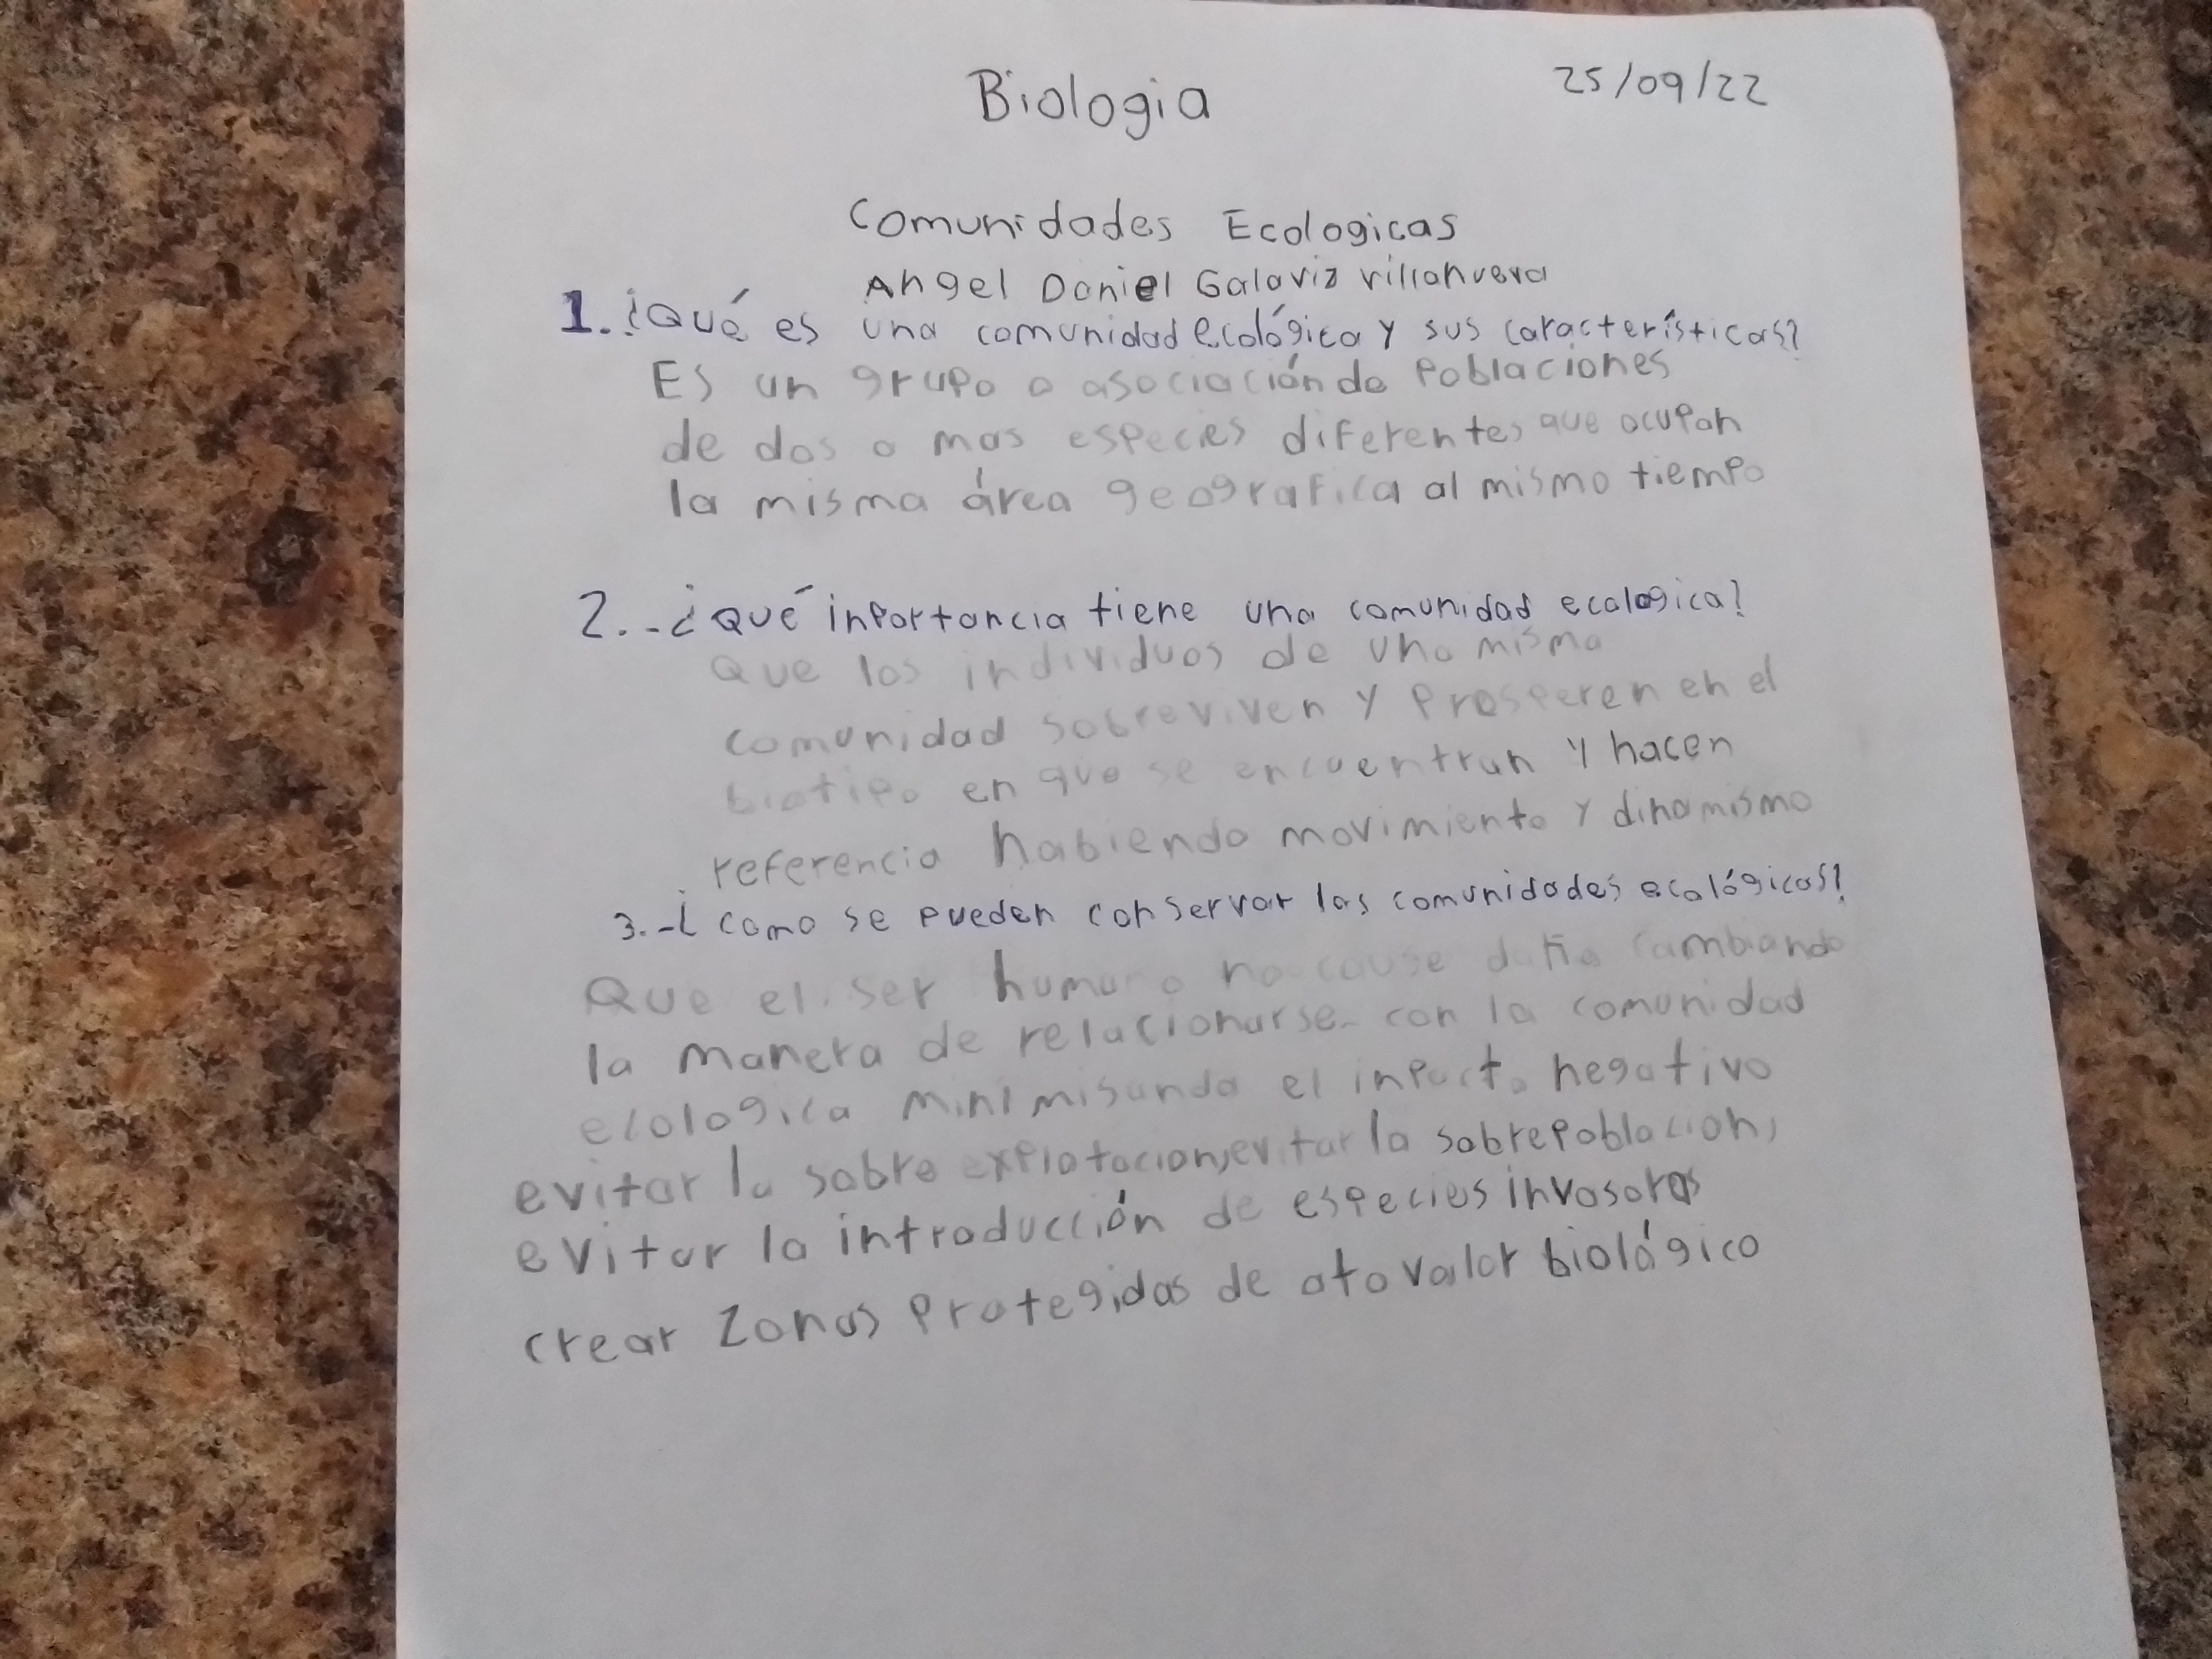 Biologia
25/09/22
Comunidades Ecologicas
Angel Daniel Galaviz Villanueva
1. ¿Qué es una comunidad ecológica y sus características?
Es un grupo o asociación de Poblaciones
de dos o mas especies diferentes que ocupan
la misma área geografica al mismo tiempo
2.-¿Qué inportancia tiene una comunidad ecologica?
Que los individuos de una misma
comunidad sobreviven y Prosperen en el
biotipo en que se encuentran y hacen
referencia habiendo movimiento y dinamismo
3.-¿como se pueden conservar las comunidades ecológicas?
Que el ser humano no cause daño cambiando
la manera de relacionarse con la comunidad
ecologica minimisando el inpacto negativo
evitar la sobre explotacion, evitar la sobrepoblacion,
evitar la introducción de especies invasoras
crear zonas Protegidas de ato valor biológico